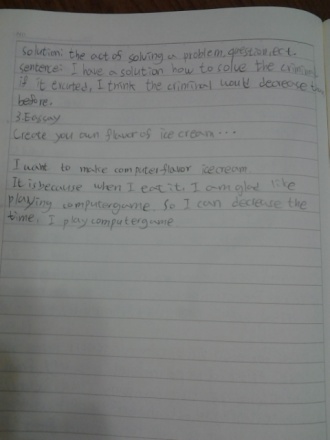 solution: the act of solving a problem, question, ect.
sentence: I have a solution how to solve the criminal
if it excuted, I think the criminal would decrease than
before.
3. Essay
Create you own flavor of ice cream...
I want to make computer flavor icecream
It is because when I eat it, I am glad like
playing computergame. So I can decrease the
time, I play computergame